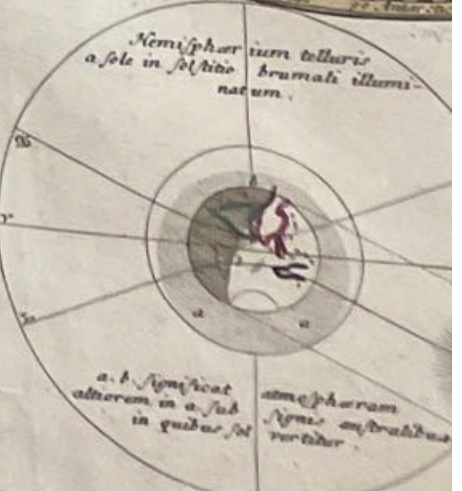 Hemisphærium telluris
a sole in solstitio brumali illumi-
natum.
b
a
a
a. b significat atmosphæram
altiorem in a sub signis australibus
in quibus sol vertitur